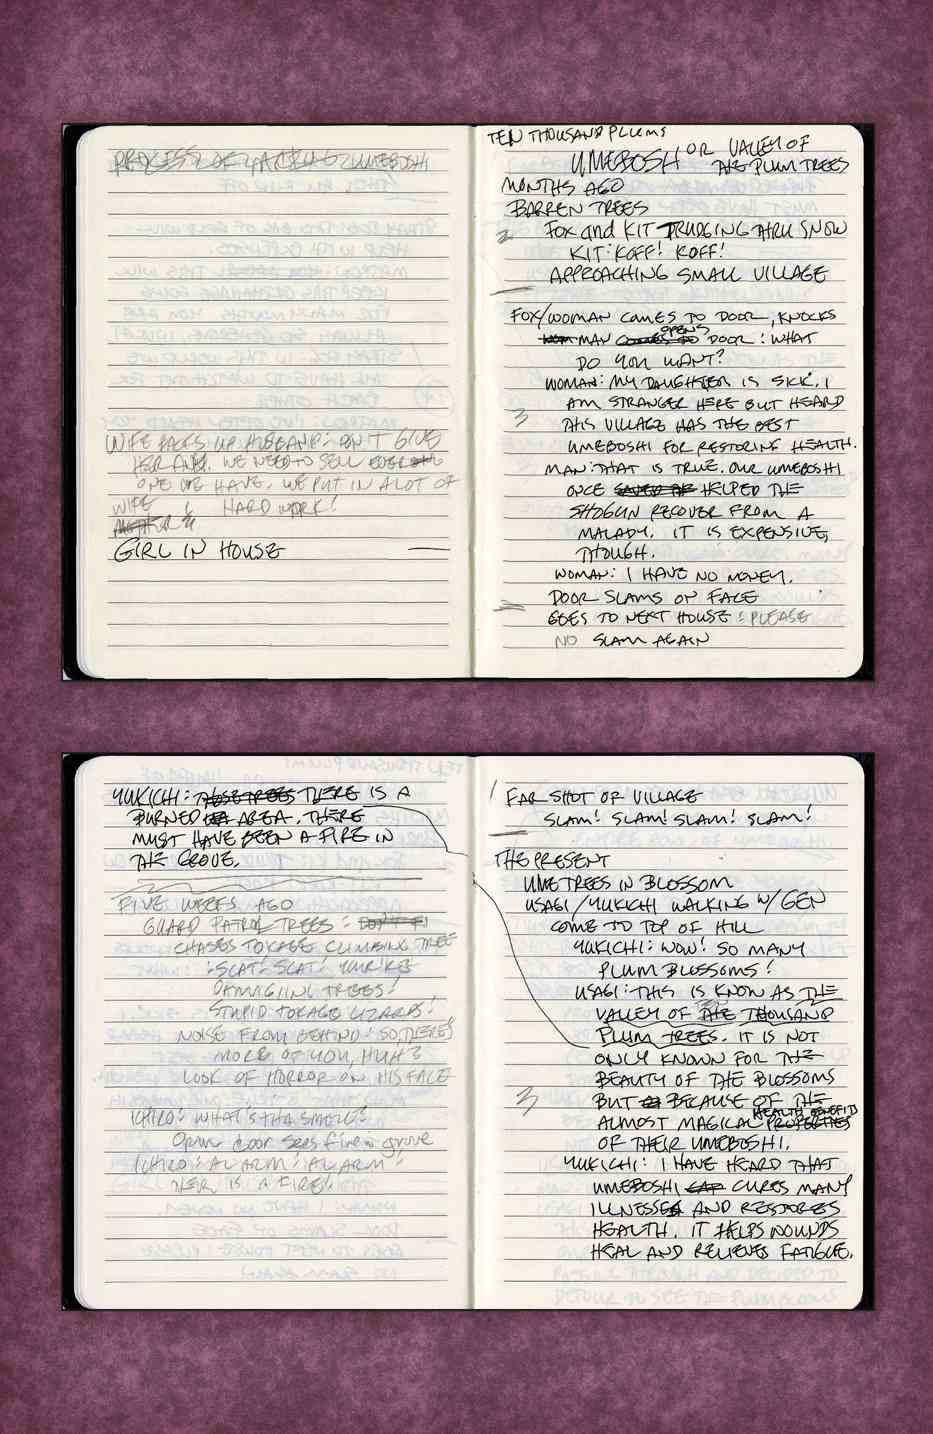 PROCESS OF MAKING UMEBOSHI
WIFE BACKS UP HUSBAND: DON'T GIVE
HER ANY. WE NEED TO SELL
ONE WE HAVE. WE PUT IN A LOT OF
WIFE HARD WORK!
GIRL IN HOUSE
TEN THOUSAND PLUMS
UMEBOSHI OR VALLEY OF
THE PLUM TREES
MONTHS AGO
BARREN TREES
2 FOX and KIT TRUDGING THRU SNOW
KIT: KOFF! KOFF!
APPROACHING SMALL VILLAGE
FOX/WOMAN COMES TO DOOR, KNOCKS
MAN OPENS DOOR: WHAT
DO YOU WANT?
WOMAN: MY DAUGHTER IS SICK. I
AM STRANGER HERE BUT HEARD
3 THIS VILLAGE HAS THE BEST
UMEBOSHI FOR RESTORING HEALTH.
MAN: THAT IS TRUE. OUR UMEBOSHI
ONCE SAVED THE HELPED THE
SHOGUN RECOVER FROM A
MALADY. IT IS EXPENSIVE,
THOUGH.
WOMAN: I HAVE NO MONEY.
DOOR SLAMS ON FACE
GOES TO NEXT HOUSE: PLEASE
NO SLAM AGAIN
YUKICHI: THOSE TREES THERE IS A
BURNED AREA. THERE
MUST HAVE BEEN A FIRE IN
THE GROVE.
FIVE WEEKS AGO
GUARD PATROL TREES:
CHASES TOKAGE CLIMBING TREE
: SCAT! SCAT! YOU'RE
DAMAGING TREES!
STUPID TOKAGE LIZARDS!
NOISE FROM BEHIND: SO, THERE'S
MORE OF YOU, HUH?
LOOK OF HORROR ON HIS FACE
ICHIRO: WHAT'S THA SMOKE?
Opens door sees fire in grove
ICHIRO: ALARM! ALARM!
THER IS A FIRE!
1 FAR SHOT OF VILLAGE
SLAM! SLAM! SLAM! SLAM!
THE PRESENT
UME TREES IN BLOSSOM
USAGI/YUKICHI WALKING W/GEN
COME TO TOP OF HILL
YUKICHI: WOW! SO MANY
PLUM BLOSSOMS!
USAGI: THIS IS KNOW AS THE
VALLEY OF THE TEN THOUSAND
PLUM TREES. IT IS NOT
ONLY KNOWN FOR THE
BEAUTY OF THE BLOSSOMS
3 BUT BECAUSE OF THE
ALMOST MAGICAL PROPERTIES HEALTH BENEFITS
OF THEIR UMEBOSHI.
YUKICHI: I HAVE HEARD THAT
UMEBOSHI CAN CURES MANY
ILLNESSES AND RESTORES
HEALTH. IT HELPS WOUNDS
HEAL AND RELIEVES FATIGUE.